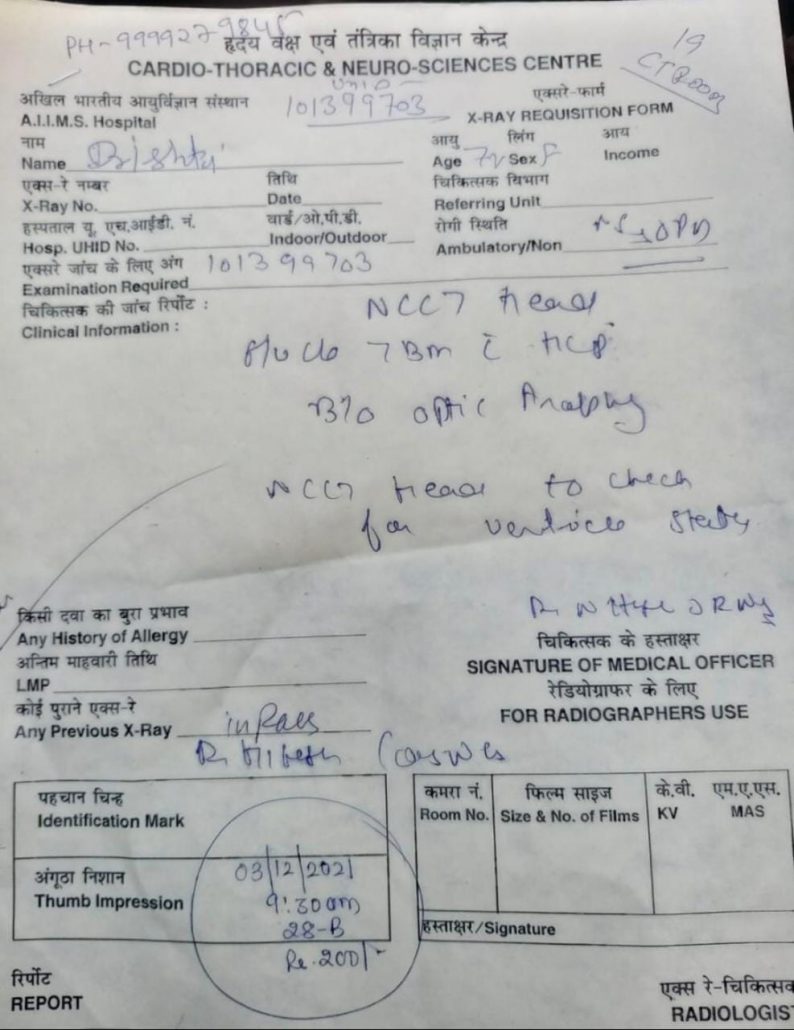 PH- 9999279845
हृदय वक्ष एवं तंत्रिका विज्ञान केन्द्र
CARDIO-THORACIC & NEURO-SCIENCES CENTRE
19
अखिल भारतीय आयुर्विज्ञान संस्थान
101399703
एक्सरे-फार्म
A.I.I.M.S. Hospital
X-RAY REQUISITION FORM
नाम
आयु लिंग आय
Name
Age 7y Sex F Income
एक्स-रे नम्बर तिथि चिकित्सक विभाग
X-Ray No. Date Referring Unit
हस्पताल यू. एच.आईडी. नं. वार्ड/ओ.पी.डी. रोगी स्थिति
Hosp. UHID No. Indoor/Outdoor Ambulatory/Non OPD
एक्सरे जांच के लिए अंग 101399703
Examination Required
चिकित्सक की जांच रिर्पोट :
NCCT head
Clinical Information :
B/o optic Atrophy
NCCT head to check
for ventricle
किसी दवा का बुरा प्रभाव
Any History of Allergy
चिकित्सक के हस्ताक्षर
अन्तिम माहवारी तिथि
SIGNATURE OF MEDICAL OFFICER
LMP
रेडियोग्राफर के लिए
कोई पुराने एक्स-रे
FOR RADIOGRAPHERS USE
Any Previous X-Ray
पहचान चिन्ह
Identification Mark
कमरा नं. फिल्म साइज के.वी. एम.ए.एस.
Room No. Size & No. of Films KV MAS
अंगूठा निशान
Thumb Impression
03/12/2021
9:30am
28-B
Re. 200/-
हस्ताक्षर/Signature
रिर्पोट
REPORT
एक्स रे-चिकित्सक
RADIOLOGIST